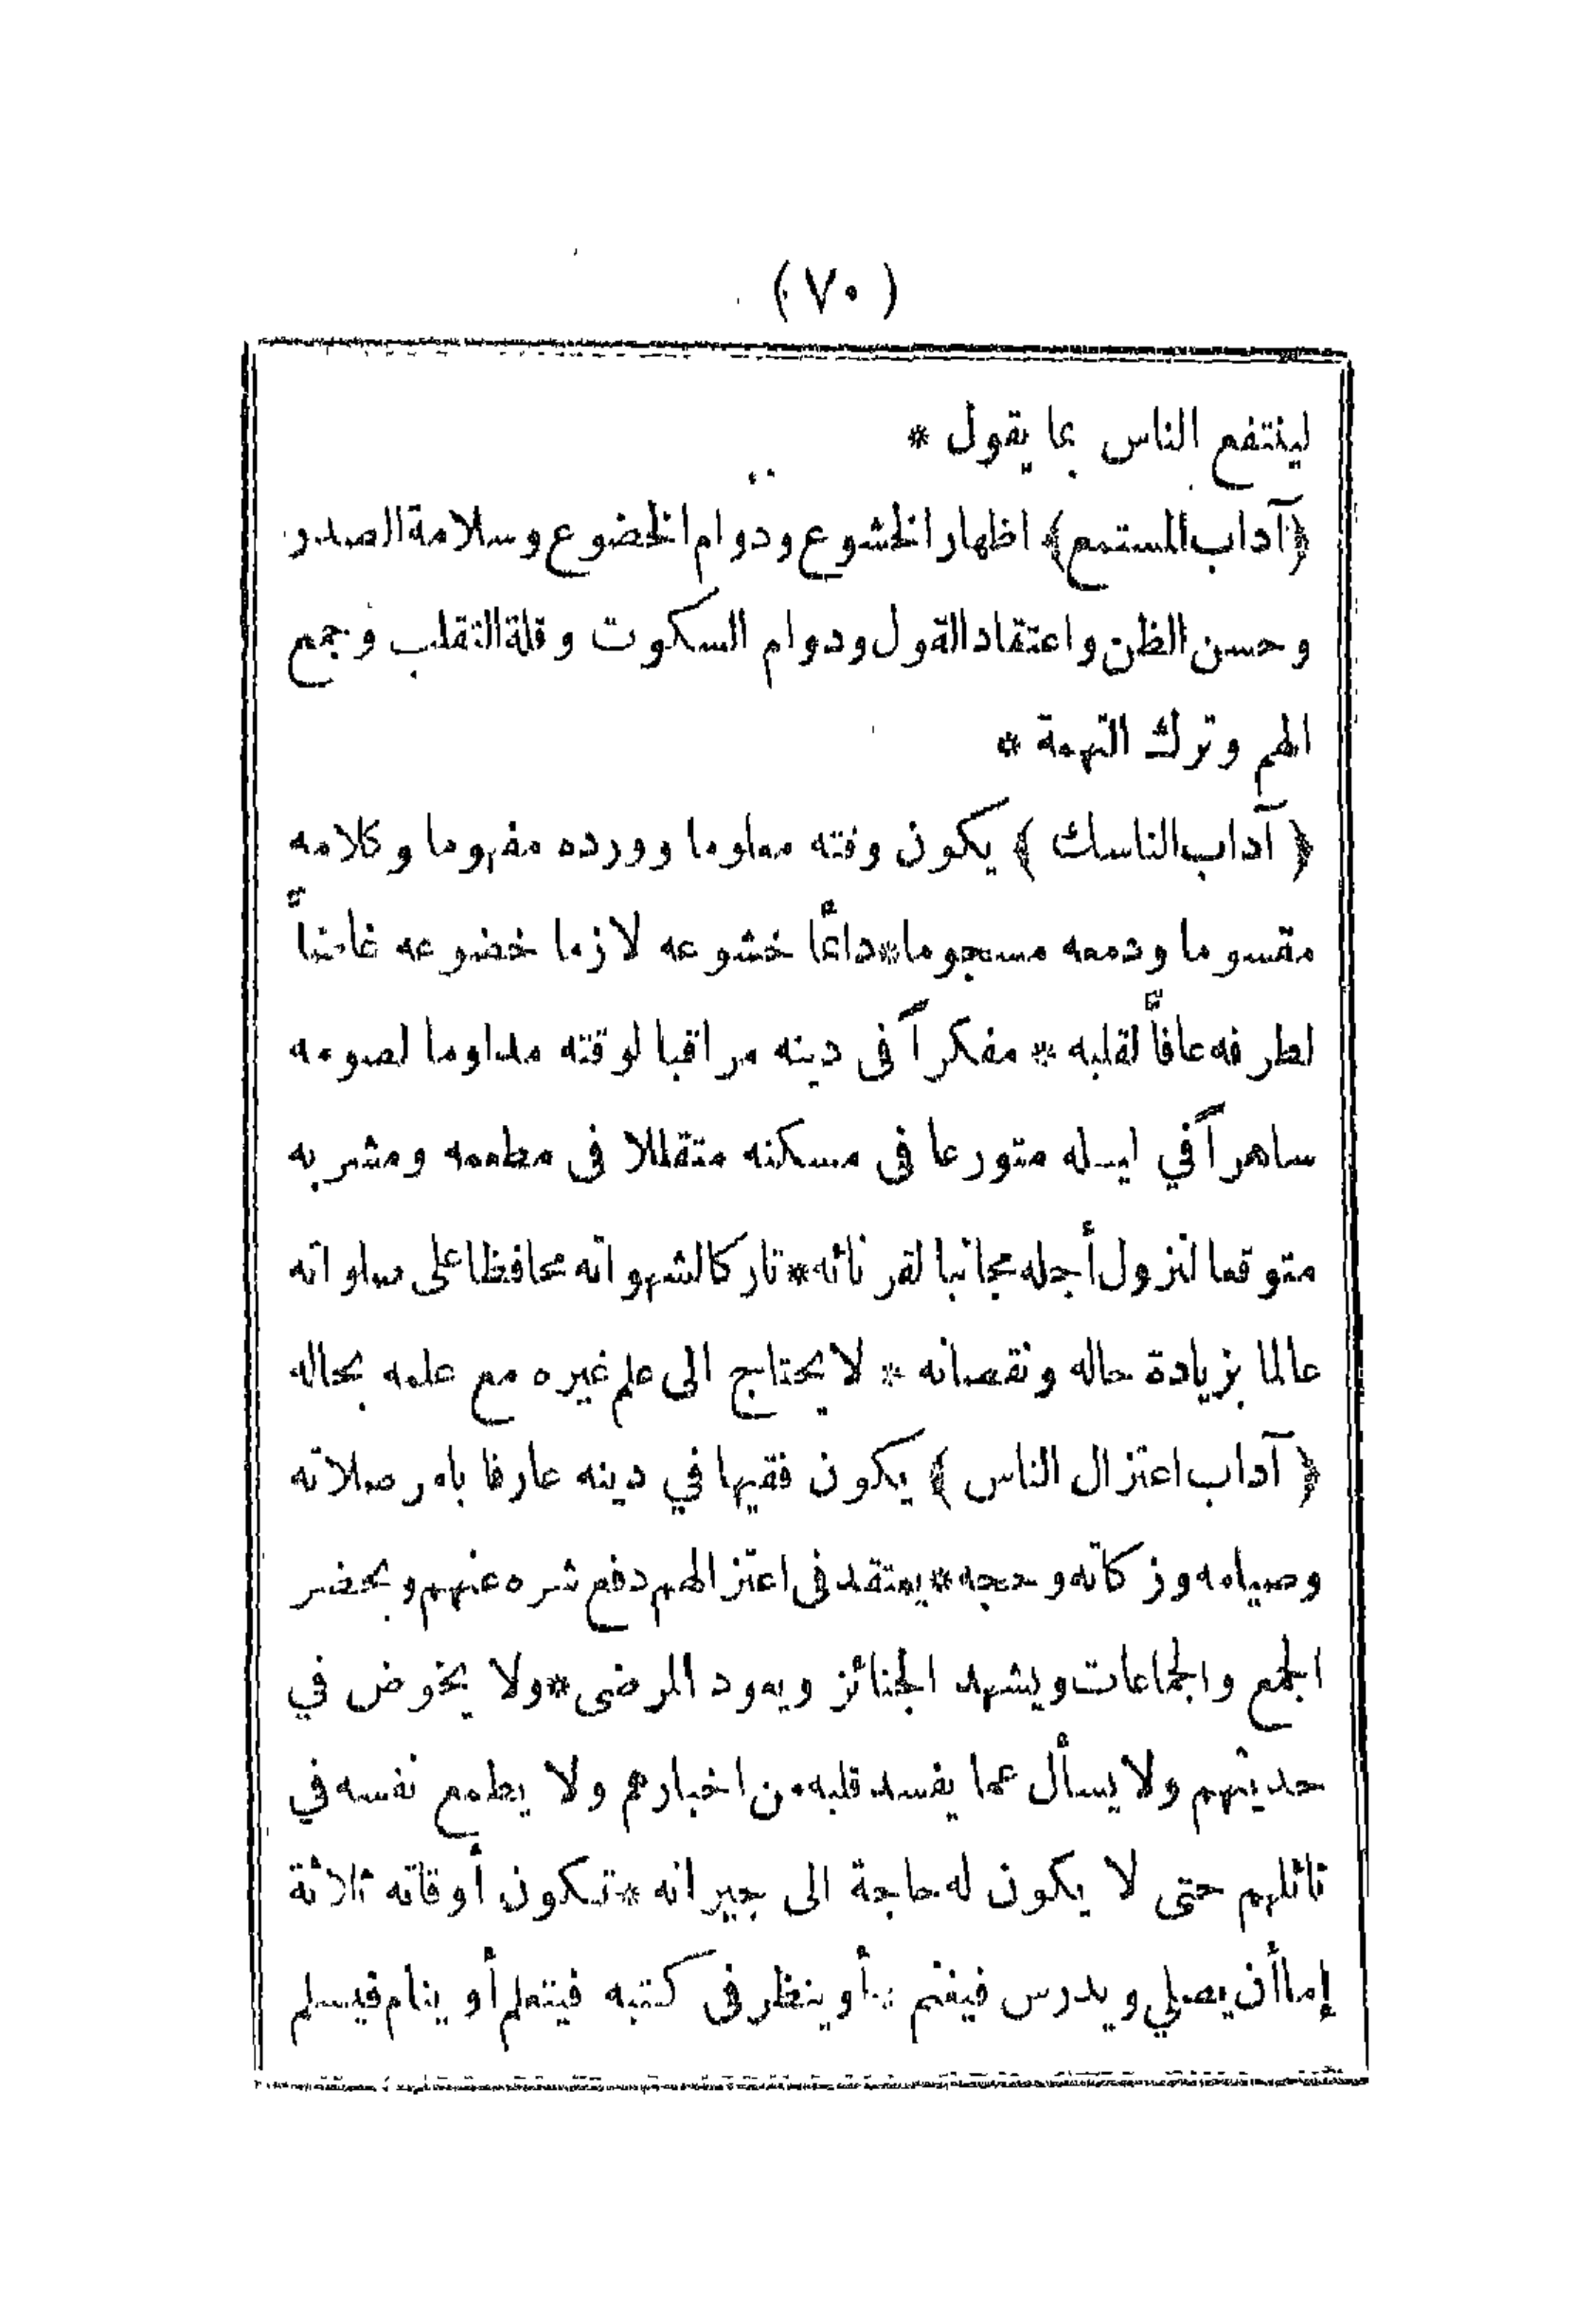 (٧٠)
لينتفع الناس بما يقول *
﴿آداب المستمع﴾ اظهار الخشوع ودوام الخضوع وسلامة الصدر
وحسن الظن واعتقاد القول ودوام السكوت وقلة التقلب وجمع
الهم وترك التهمة *
﴿ آداب الناسك ﴾ يكون وقته معلوما وورده مفهوما وكلامه
مقسوما ودمعه مسجوما * دائمًا خشوعه لازما خضوعه غاضاً
لطرفه عافاً لقلبه * مفكراً فى دينه مراقبا لوقته مداوما لصومه
ساهراً في ليله متورعا فى مسكنه متقللا فى مطعمه ومشربه
متوقعا لنزول أجله مجانبا لقرنائه * تاركا لشهواته محافظا على صلواته
عالما بزيادة حاله ونقصانه * لا يحتاج الى علم غيره مع علمه بحاله
﴿ آداب اعتزال الناس ﴾ يكون فقيها في دينه عارفا بامر صلاته
وصيامه وزكاته وحجه * يعتقد فى اعتزالهم دفع شره عنهم ويحضر
الجمع والجماعات ويشهد الجنائز ويعود المرضى * ولا يخوض في
حديثهم ولا يسأل عما يفسد قلبه من اخبارهم ولا يطمع نفسه في
نائلهم حتى لا يكون له حاجة الى جيرانه * تكون أوقاته ثلاثة
إما أن يصلي ويدرس فيغنم * أو ينظر فى كتبه فيتعلم أو ينام فيسلم